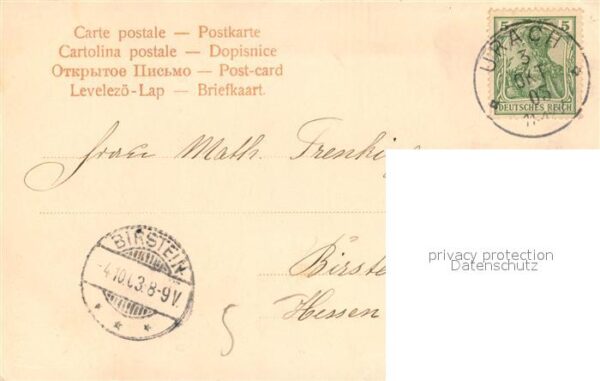 Carte postale — Postkarte
Cartolina postale — Dopisnice
Открытое Письмо — Post-card
Levelező-Lap — Briefkaart.
5 5
DEUTSCHES REICH
URACH
3
OKT
03
Frau Math.
BIRSTEIN
-4.10.03.8-9V.
* * *
Birste
Hessen
5
privacy protection
Datenschutz